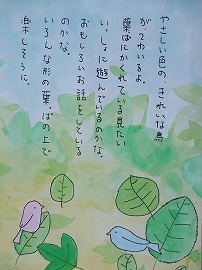 やさしい色の、きれいな鳥
がってゆいるよ。
葉ぱにかくれている見たい
いっしょに遊んでいるのかな。
おもしろいお話をしている
のかな。
いろんな形の葉っぱの上で
楽しそうに。